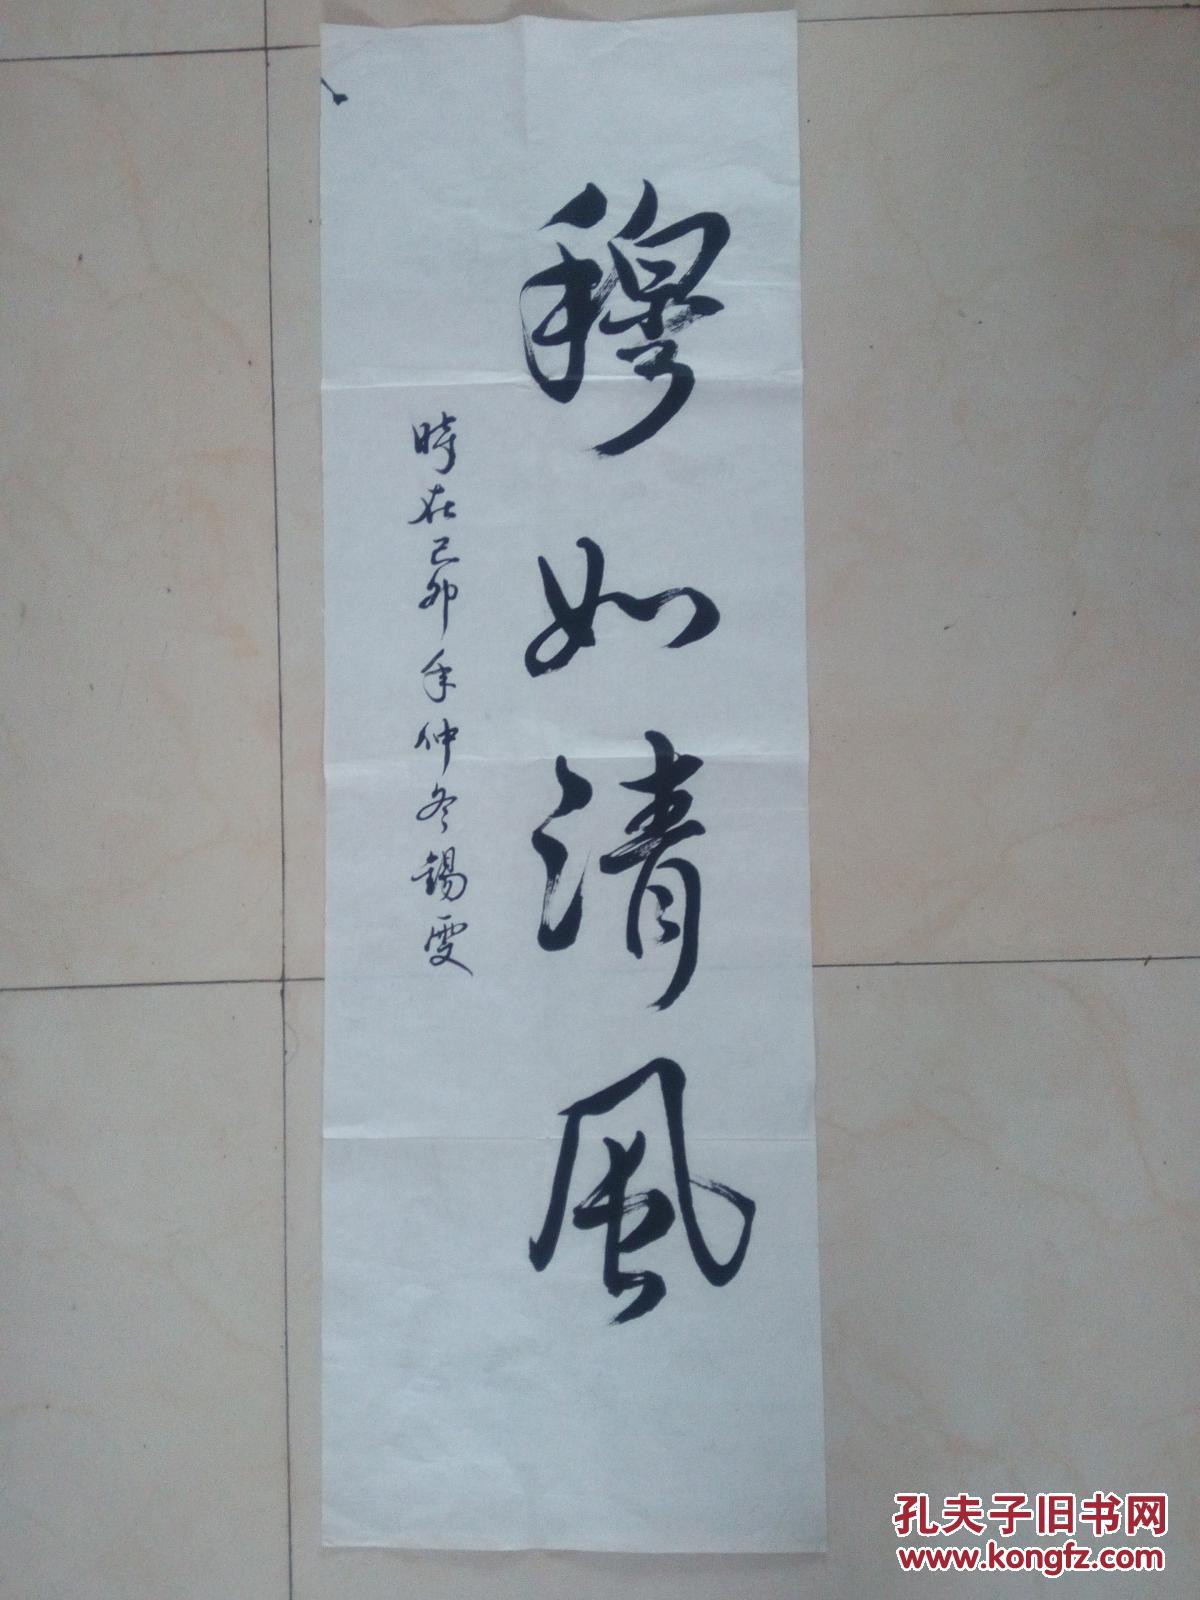 穆如清風
時在己卯年仲冬錫雯
孔夫子旧书网
www.kongfz.com